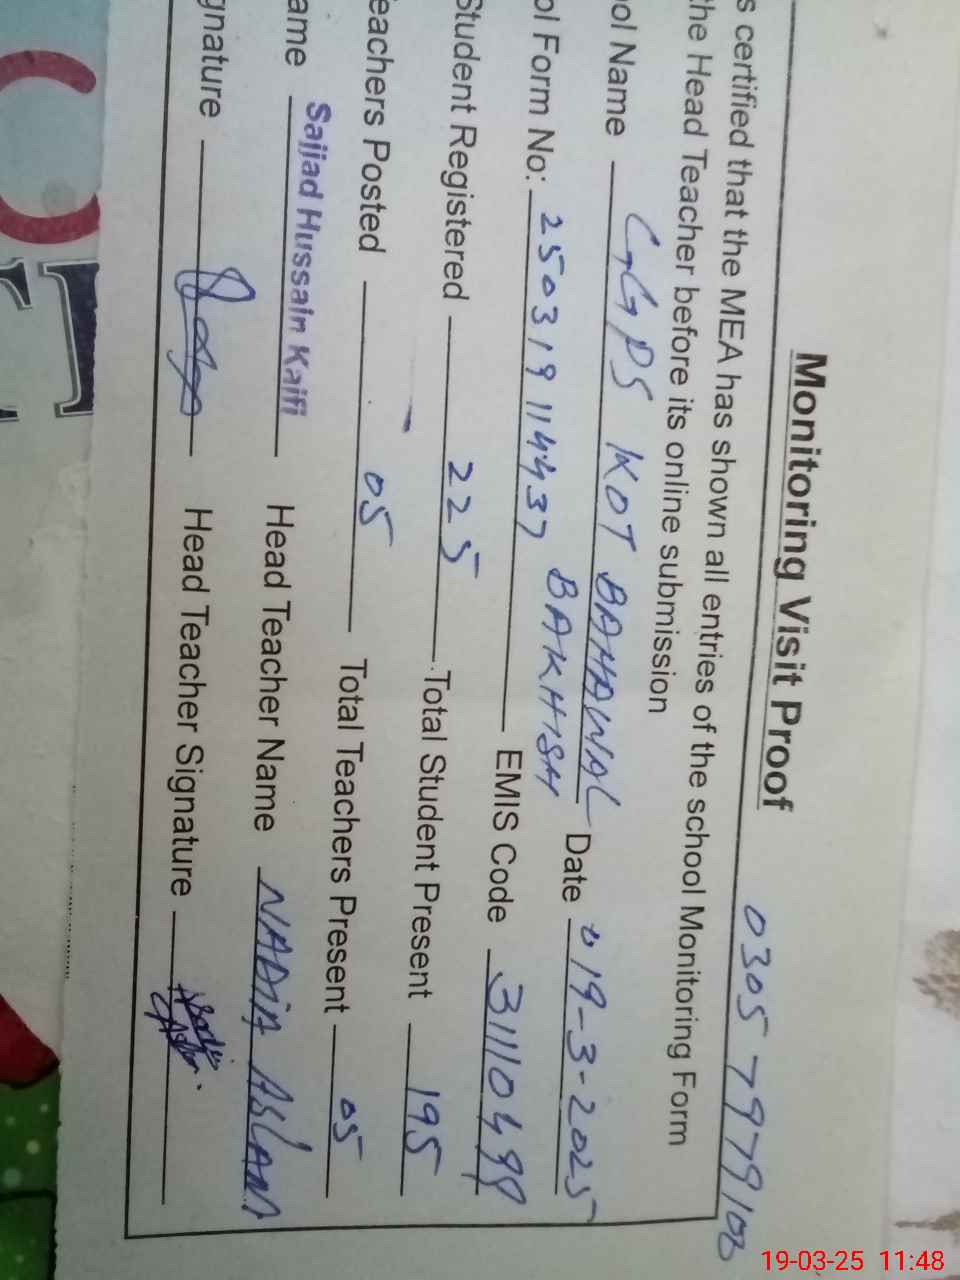 Monitoring Visit Proof
0305 7979108
s certified that the MEA has shown all entries of the school Monitoring Form
the Head Teacher before its online submission
ool Name GGPS KOT BAHAWAL Date 19-3-2025
BAKHSH
ol Form No: 250319114437 EMIS Code 31110499
Student Registered 225 Total Student Present 195
eachers Posted 05 Total Teachers Present 05
ame Sajjad Hussain Kaifi Head Teacher Name NADIA ASLAM
gnature Head Teacher Signature
19-03-25 11:48